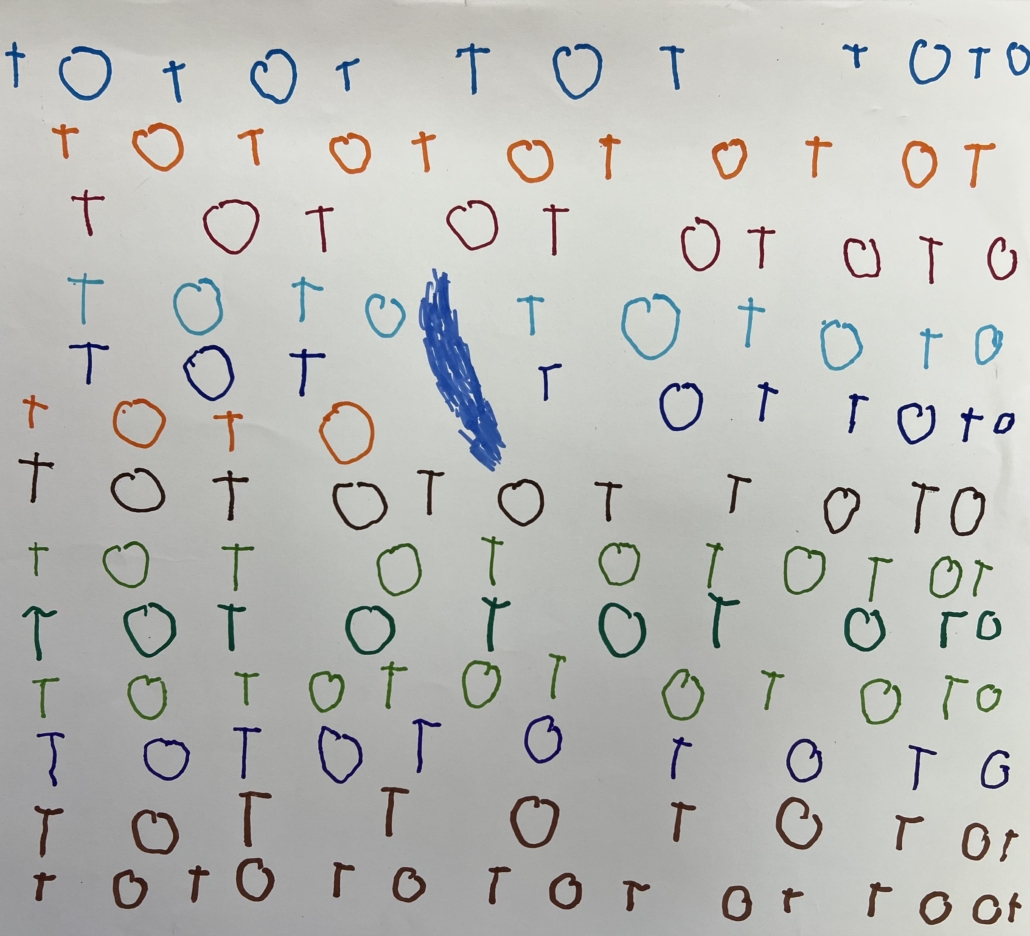 T O T O T T O T T O T O
T O T O T O T O T O T
T O T O T O T O T O
T O T O T O T O T O
T O T T O T T O T O
T O T O
T O T O T O T T O T O
T O T O T O T O T O T
T O T O T O T O T O
T O T O T O T O T O T O
T O T O T O T O T O
T O T T O T O T O T
T O T O T O T O T O T T O O T